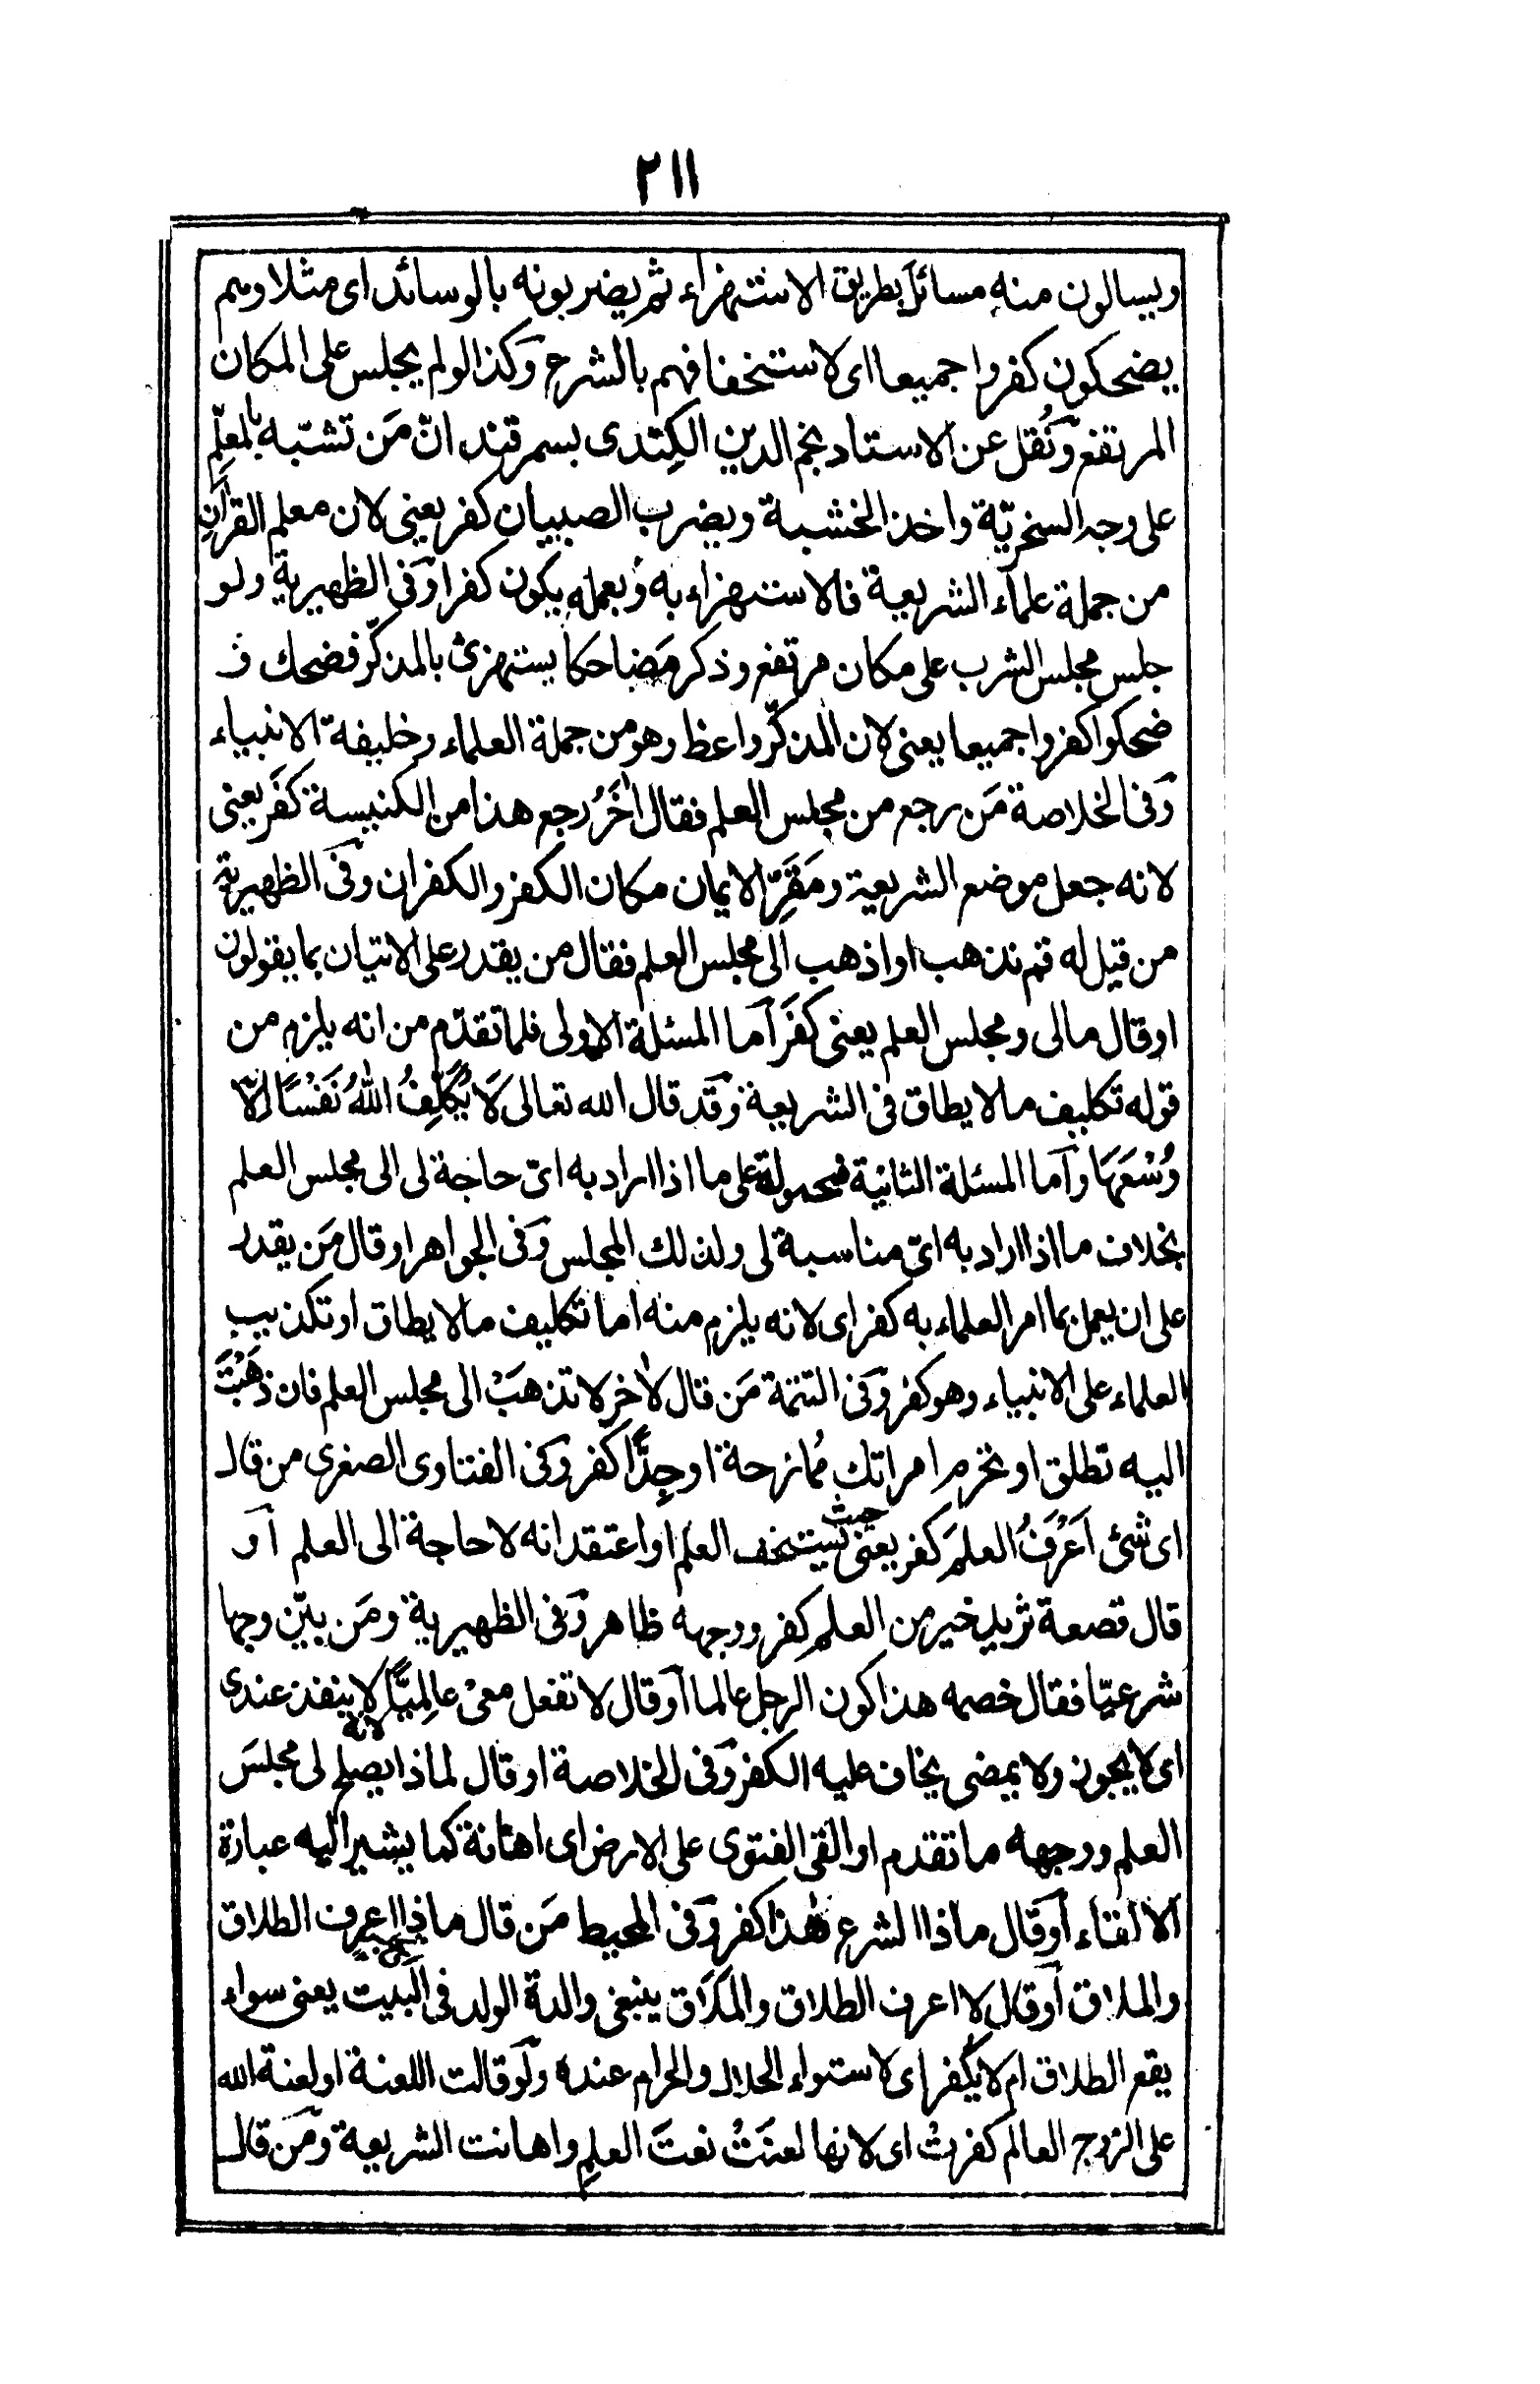 ٢١١
ويسالون منه مسائل بطريق الاستهزاء ثم يضربونه بالوسائد اى مثلا وهم
يضحكون كفروا جميعا اى لاستخفافهم بالشرع وكذا لو لم يجلس على المكان
المرتفع ونُقل عن الاستاد نجم الدين الكِندى بسمرقند انّ مَن تشبّه بالمعلّم
على وجه السخريّة واخذ الخشبة ويضرب الصبيان كفر يعنى لان معلم القرآن
من جملة علماء الشريعة فالاستهزاء به وبعمله يكون كفرا وفى الظهيرية ولو
جلس مجلس الشرب على مكان مرتفع وذكر مَضاحكا يستهزئ بالمذكّر فضحك و
ضحكوا كفروا جميعا يعنى لان المذكّر واعظ وهو من جملة العلماء وخليفة الانبياء
وفى الخلاصة مَن رجع من مجلس العلم فقال اٰخَرُ رجع هذا من الكنيسة كفَر يعنى
لانه جعل موضع الشريعة ومَقَرّ الايمان مكان الكفر والكفران وفى الظهيرية
من قيل له قم نذهب او اذهب الى مجلس العلم فقال من يقدر على الاتيان بما يقولون
او قال مالى ومجلس العلم يعنى كفَر اما المسئلة الاولى فلما تقدّم من انه يلزم من
قوله تكليف ما لا يطاق فى الشريعة وقد قال الله تعالى لَا يُكَلِّفُ اللهُ نَفْسًا اِلَّا
وُسْعَهَا وأما المسئلة الثانية فمحمولة على ما اذا اراد به اىّ حاجة لى الى مجلس العلم
بخلاف ما اذا اراد به اىّ مناسبة لى ولذلك المجلس وفى الجواهر او قال مَن يقدر
على ان يعمل بما امر العلماء به كفر اى لانه يلزم منه اما تكليف ما لا يطاق او تكذيب
العلماء على الانبياء وهو كفر وفى التتمة مَن قال لاٰخر لا تذهبْ الى مجلس العلم فان ذهَبْتَ
اليه تطلق او تحرم امراتك مُمازحة او جِدًّا كفر وفى الفتاوى الصغرى من قال
اى شئ اَعْرَفُ العلمَ كفر يعنى حيث يستخف العلم او اعتقد انه لا حاجة الى العلم أو
قال قصعة ثريد خير من العلم كفر ووجهه ظاهر وفى الظهيرية ومَن بيّن وجها
شرعيّا فقال خصمه هذا كون الرجل عالما أو قال لا تفعل معىْ عالِميًّا لانه لا ينفذ عندى
اى لا يجوز ولا يمضى يخاف عليه الكفر وفى الخلاصة او قال لماذا يصلح لى مجلسَ
العلم ووجهه ما تقدم او القى الفتوى على الارض اى اهانة كما يشير اليه عبارة
الالقاء أو قال ماذا الشرع هٰذا كفر وفى المحيط مَن قال ماذا اعرف الطلاق
والملاق أو قال لا اعرف الطلاق والملَاق ينبغى والدة الولد فى البيت يعنى سواء
يقع الطلاق ام لا يكفر اى لاستواء الحلال والحرام عنده ولو قالت اللعنة او لعنة الله
على الزوج العالم كفرت اى لانها لعنَتْ نعتَ العلمِ واهانت الشريعة ومَن قال